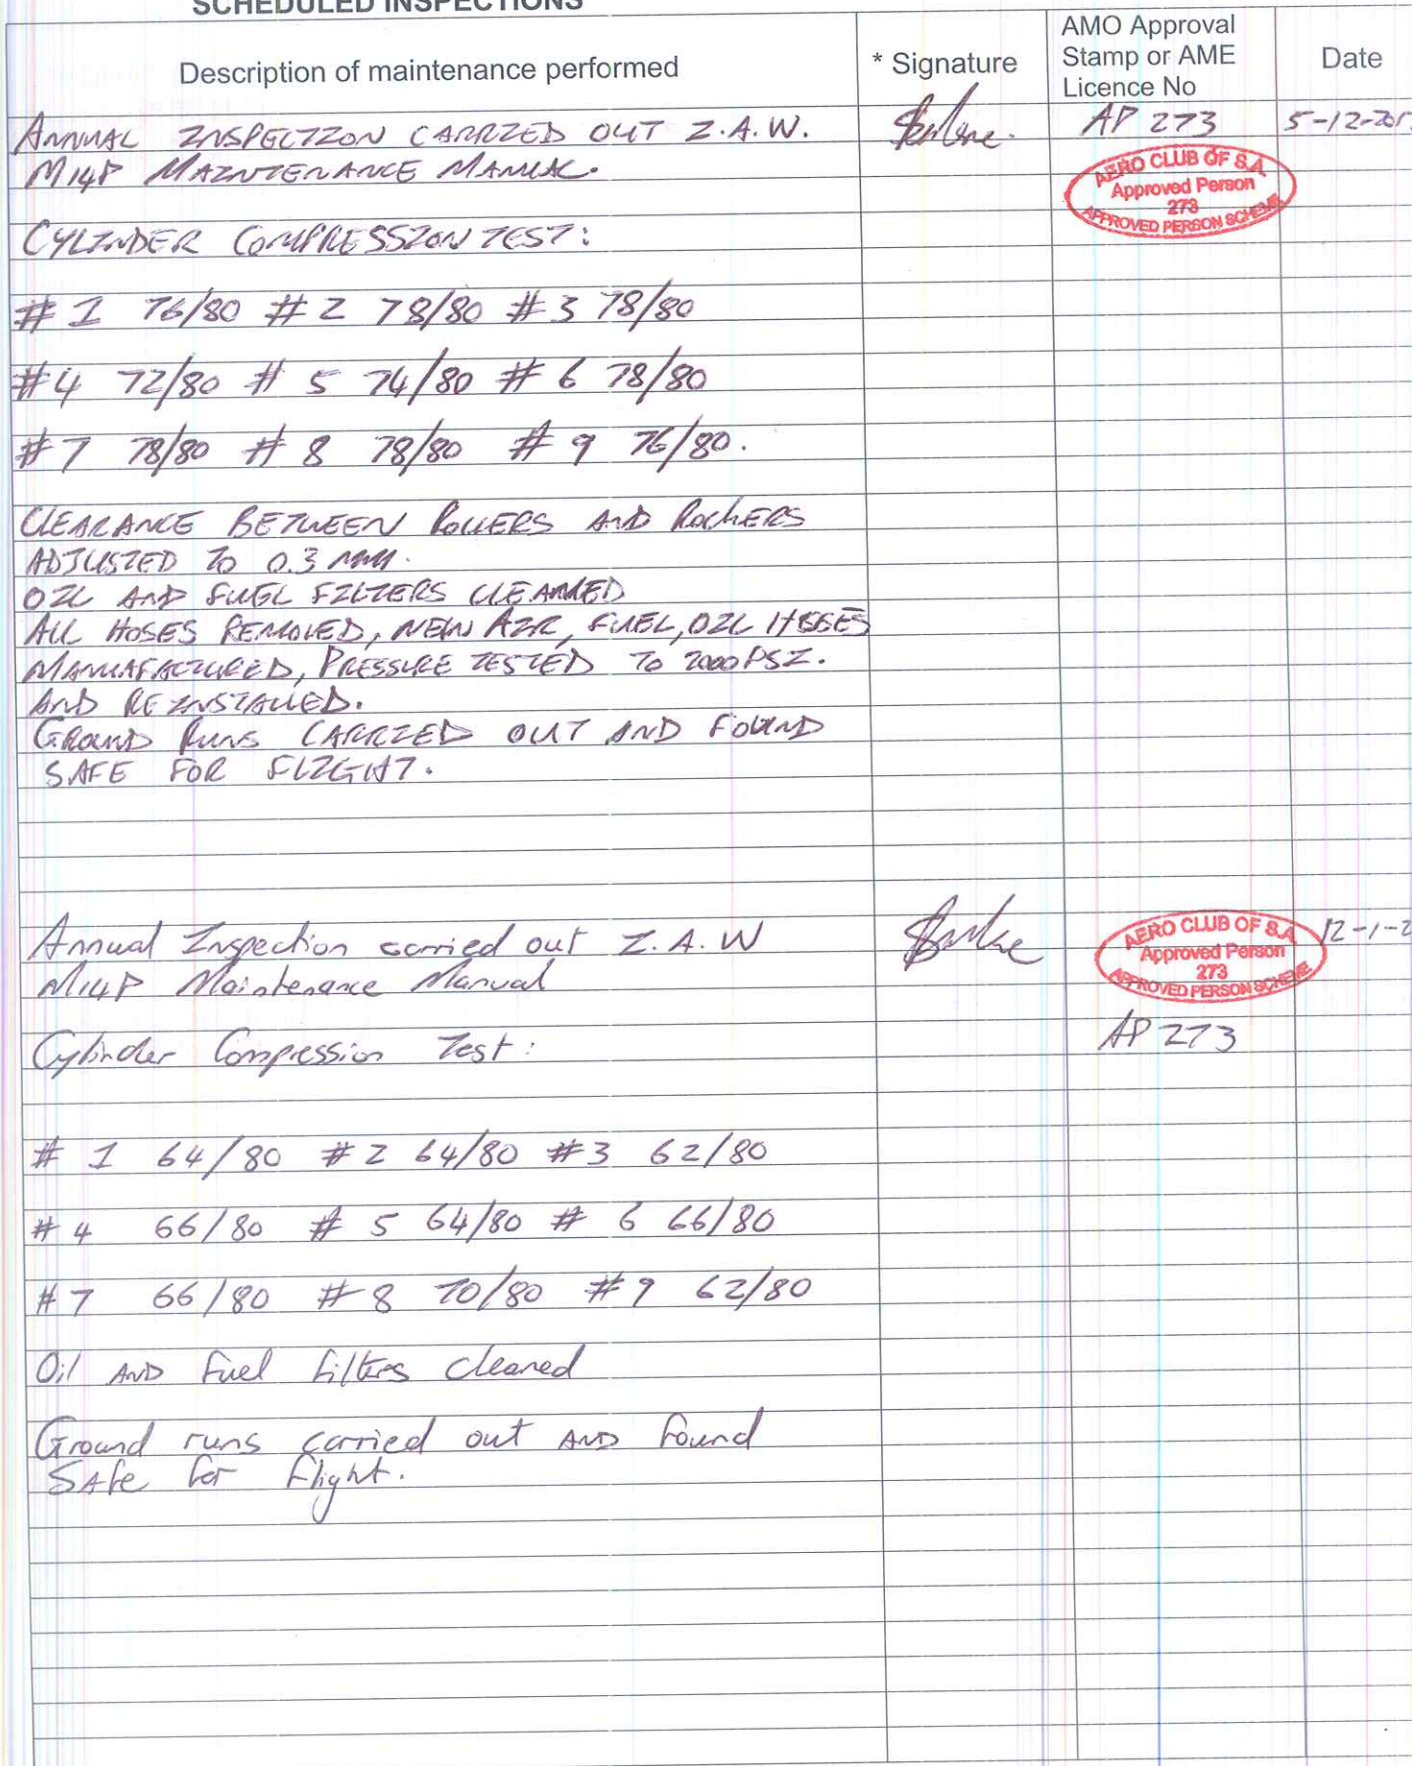 SCHEDULED INSPECTIONS
Description of maintenance performed
* Signature
AMO Approval
Stamp or AME
Licence No
Date
ANNUAL INSPECTION CARRIED OUT I.A.W.
AP 273
5-12-201
M14P MAINTENANCE MANUAL.
AERO CLUB OF S.A.
Approved Person
273
APPROVED PERSON SCHEME
CYLINDER COMPRESSION TEST:
# 1 76/80 # 2 78/80 # 3 78/80
# 4 72/80 # 5 74/80 # 6 78/80
# 7 78/80 # 8 78/80 # 9 76/80.
CLEARANCE BETWEEN ROLLERS AND ROCKERS
ADJUSTED TO 0.3 MM.
OIL AND FUEL FILTERS CLEANED
ALL HOSES REMOVED, NEW AIR, FUEL, OIL HOSES
MANUFACTURED, PRESSURE TESTED TO 2000 PSI.
AND REINSTALLED.
GROUND RUNS CARRIED OUT AND FOUND
SAFE FOR FLIGHT.
Annual Inspection carried out I.A.W
AERO CLUB OF S.A.
Approved Person
273
APPROVED PERSON SCHEME
12-1-2
M14P Maintenance Manual
Cylinder Compression Test:
AP 273
# 1 64/80 # 2 64/80 # 3 62/80
# 4 66/80 # 5 64/80 # 6 66/80
# 7 66/80 # 8 70/80 # 9 62/80
Oil AND Fuel filters cleaned
Ground runs carried out AND found
Safe for flight.